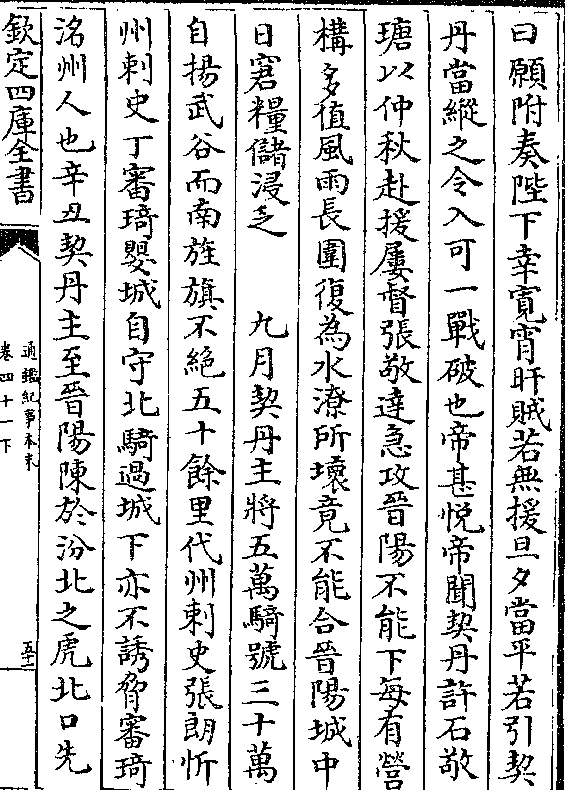 曰願附奏陛下幸寛宵旰賊若無援旦夕當平若引契
丹當縱之令入可一戰破也帝甚悦帝聞契丹許石敬
瑭以仲秋赴援屢督張敬達急攻晉陽不能下每有營
構多值風雨長圍復為水潦所壞竟不能合晉陽城中
日窘糧儲浸乏　九月契丹主將五萬騎號三十萬
自揚武谷而南旌旗不絶五十餘里代州刺史張朗忻
州刺史丁審琦嬰城自守北騎過城下亦不誘脅審琦
洺州人也辛丑契丹主至晉陽陳於汾北之虎北口先
欽定四庫全書
通鑑紀事本末
卷四十一下
五十